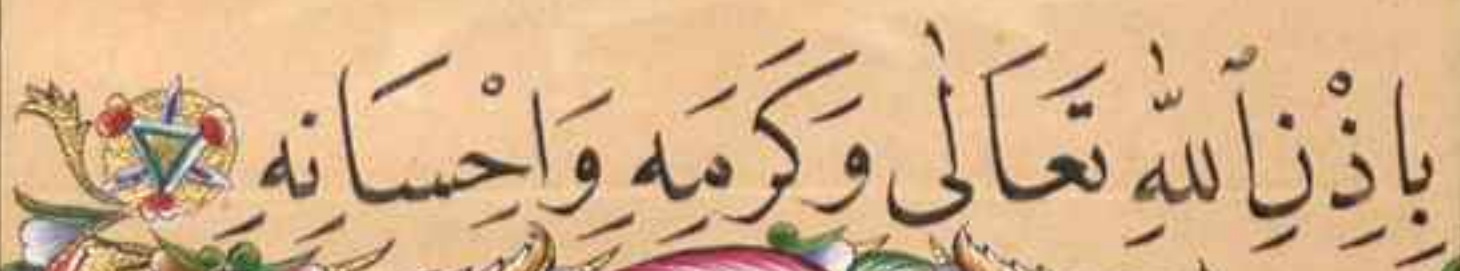 بِاِذْنِ ٱللّٰهِ تَعَالٰى وَكَرَمِهِ وَاِحْسَانِهِ